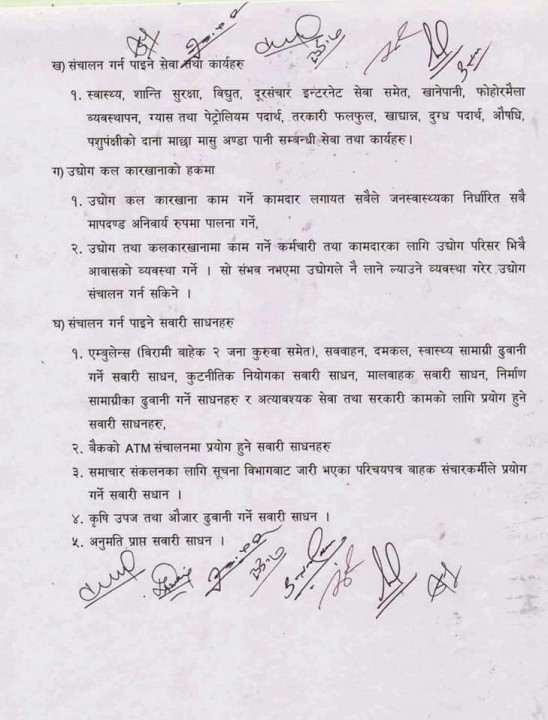 ख) संचालन गर्न पाइने सेवा तथा कार्यहरु
१. स्वास्थ्य, शान्ति सुरक्षा, विघुत, दूरसंचार इन्टरनेट सेवा समेत, खानेपानी, फोहोरमैला
व्यवस्थापन, ग्यास तथा पेट्रोलियम पदार्थ, तरकारी फलफुल, खाद्यान्न, दुग्ध पदार्थ, औषधि,
पशुपंक्षीको दाना माछा मासु अण्डा पानी सम्बन्धी सेवा तथा कार्यहरु।
ग) उद्योग कल कारखानाको हकमा
१. उद्योग कल कारखाना काम गर्ने कामदार लगायत सबैले जनस्वास्थ्यका निर्धारित सबै
मापदण्ड अनिवार्य रुपमा पालना गर्ने,
२. उद्योग तथा कलकारखानामा काम गर्ने कर्मचारी तथा कामदारका लागि उद्योग परिसर भित्रै
आवासको व्यवस्था गर्ने । सो संभव नभएमा उद्योगले नै लाने ल्याउने व्यवस्था गरेर उद्योग
संचालन गर्न सकिने ।
घ) संचालन गर्न पाइने सवारी साधनहरु
१. एम्बुलेन्स (विरामी वाहेक २ जना कुरुवा समेत), सववाहन, दमकल, स्वास्थ्य सामाग्री ढुवानी
गर्ने सवारी साधन, कुटनीतिक नियोगका सवारी साधन, मालबाहक सवारी साधन, निर्माण
सामाग्रीका ढुवानी गर्ने साधनहरु र अत्यावश्यक सेवा तथा सरकारी कामको लागि प्रयोग हुने
सवारी साधनहरु,
२. बैकको ATM संचालनमा प्रयोग हुने सवारी साधनहरु
३. समाचार संकलनका लागि सूचना विभागवाट जारी भएका परिचयपत्र वाहक संचारकर्मीले प्रयोग
गर्ने सवारी सधान ।
४. कृषि उपज तथा औजार ढुवानी गर्ने सवारी साधन ।
५. अनुमति प्राप्त सवारी साधन ।